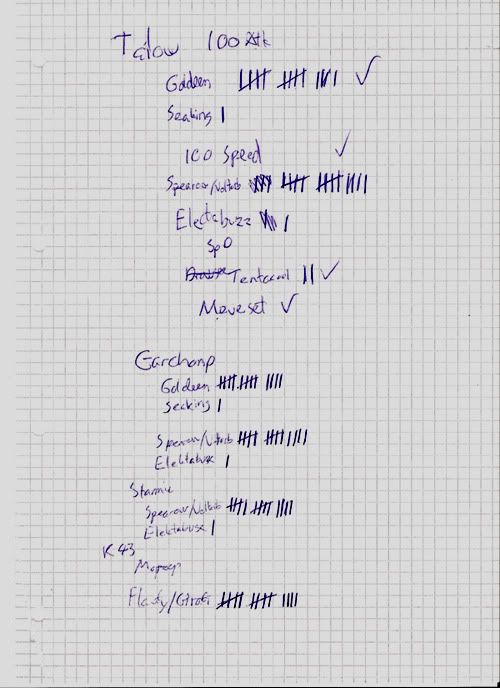 Talow 100 Atk
Goldeen |||| |||| |||| ✓
Seaking |
100 Speed ✓
Spearow/Voltorb |||| |||| ||||
Elektabuzz |
SpD
Tentacool || ✓
Moveset ✓
Garchomp
Goldeen |||| |||| ||||
Seaking |
Spearow/Voltorb |||| |||| ||||
Elektabuse |
Starmie
Spearow/Voltorb |||| |||| ||||
Elektabuse |
K43
Flaafy/ |||| |||| ||||